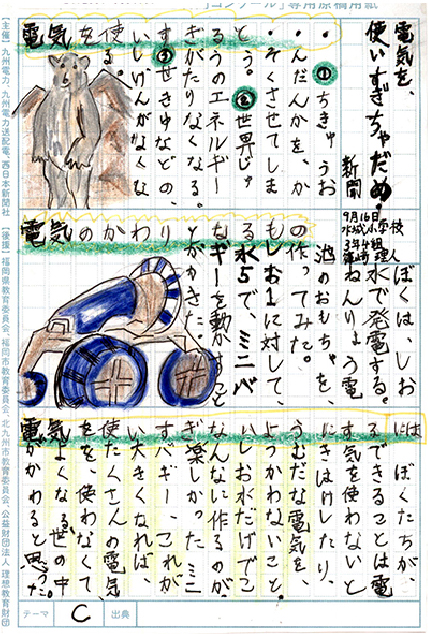 電気を、
使いすぎちゃだめ!
新聞
9月16日
水城小学校
3年4組
①ちきゅうお
んだんかを、か
そくさせてしま
う。②世界じゅ
うのエネルギー
がたりなくなる。
③せきゆなどの、
しげんがなくな
る。
電気のかわり
ぼくは、しお
水で発電する。
ねんりょう電
池のおもちゃを、
作ってみた。
しお1に対して、
水5で、ミニバ
ギーを動かすこと
ができた。
ぼくたちが、
できることは電
気を使わないと
きはけしたり、
むだな電気を、
つかわないこと。
しお水だけでこ
んなに作るのが、
楽しかった。ミニ
バギー、これが
大きくなれば、
たくさんの電気
を、使わなくて
よくなる世の中
がかわると思った。
テーマ C 出典
【主催】九州電力、九州電力送配電、西日本新聞社
【後援】福岡県教育委員会、福岡市教育委員会、北九州市教育委員会、公益財団法人 理想教育財団